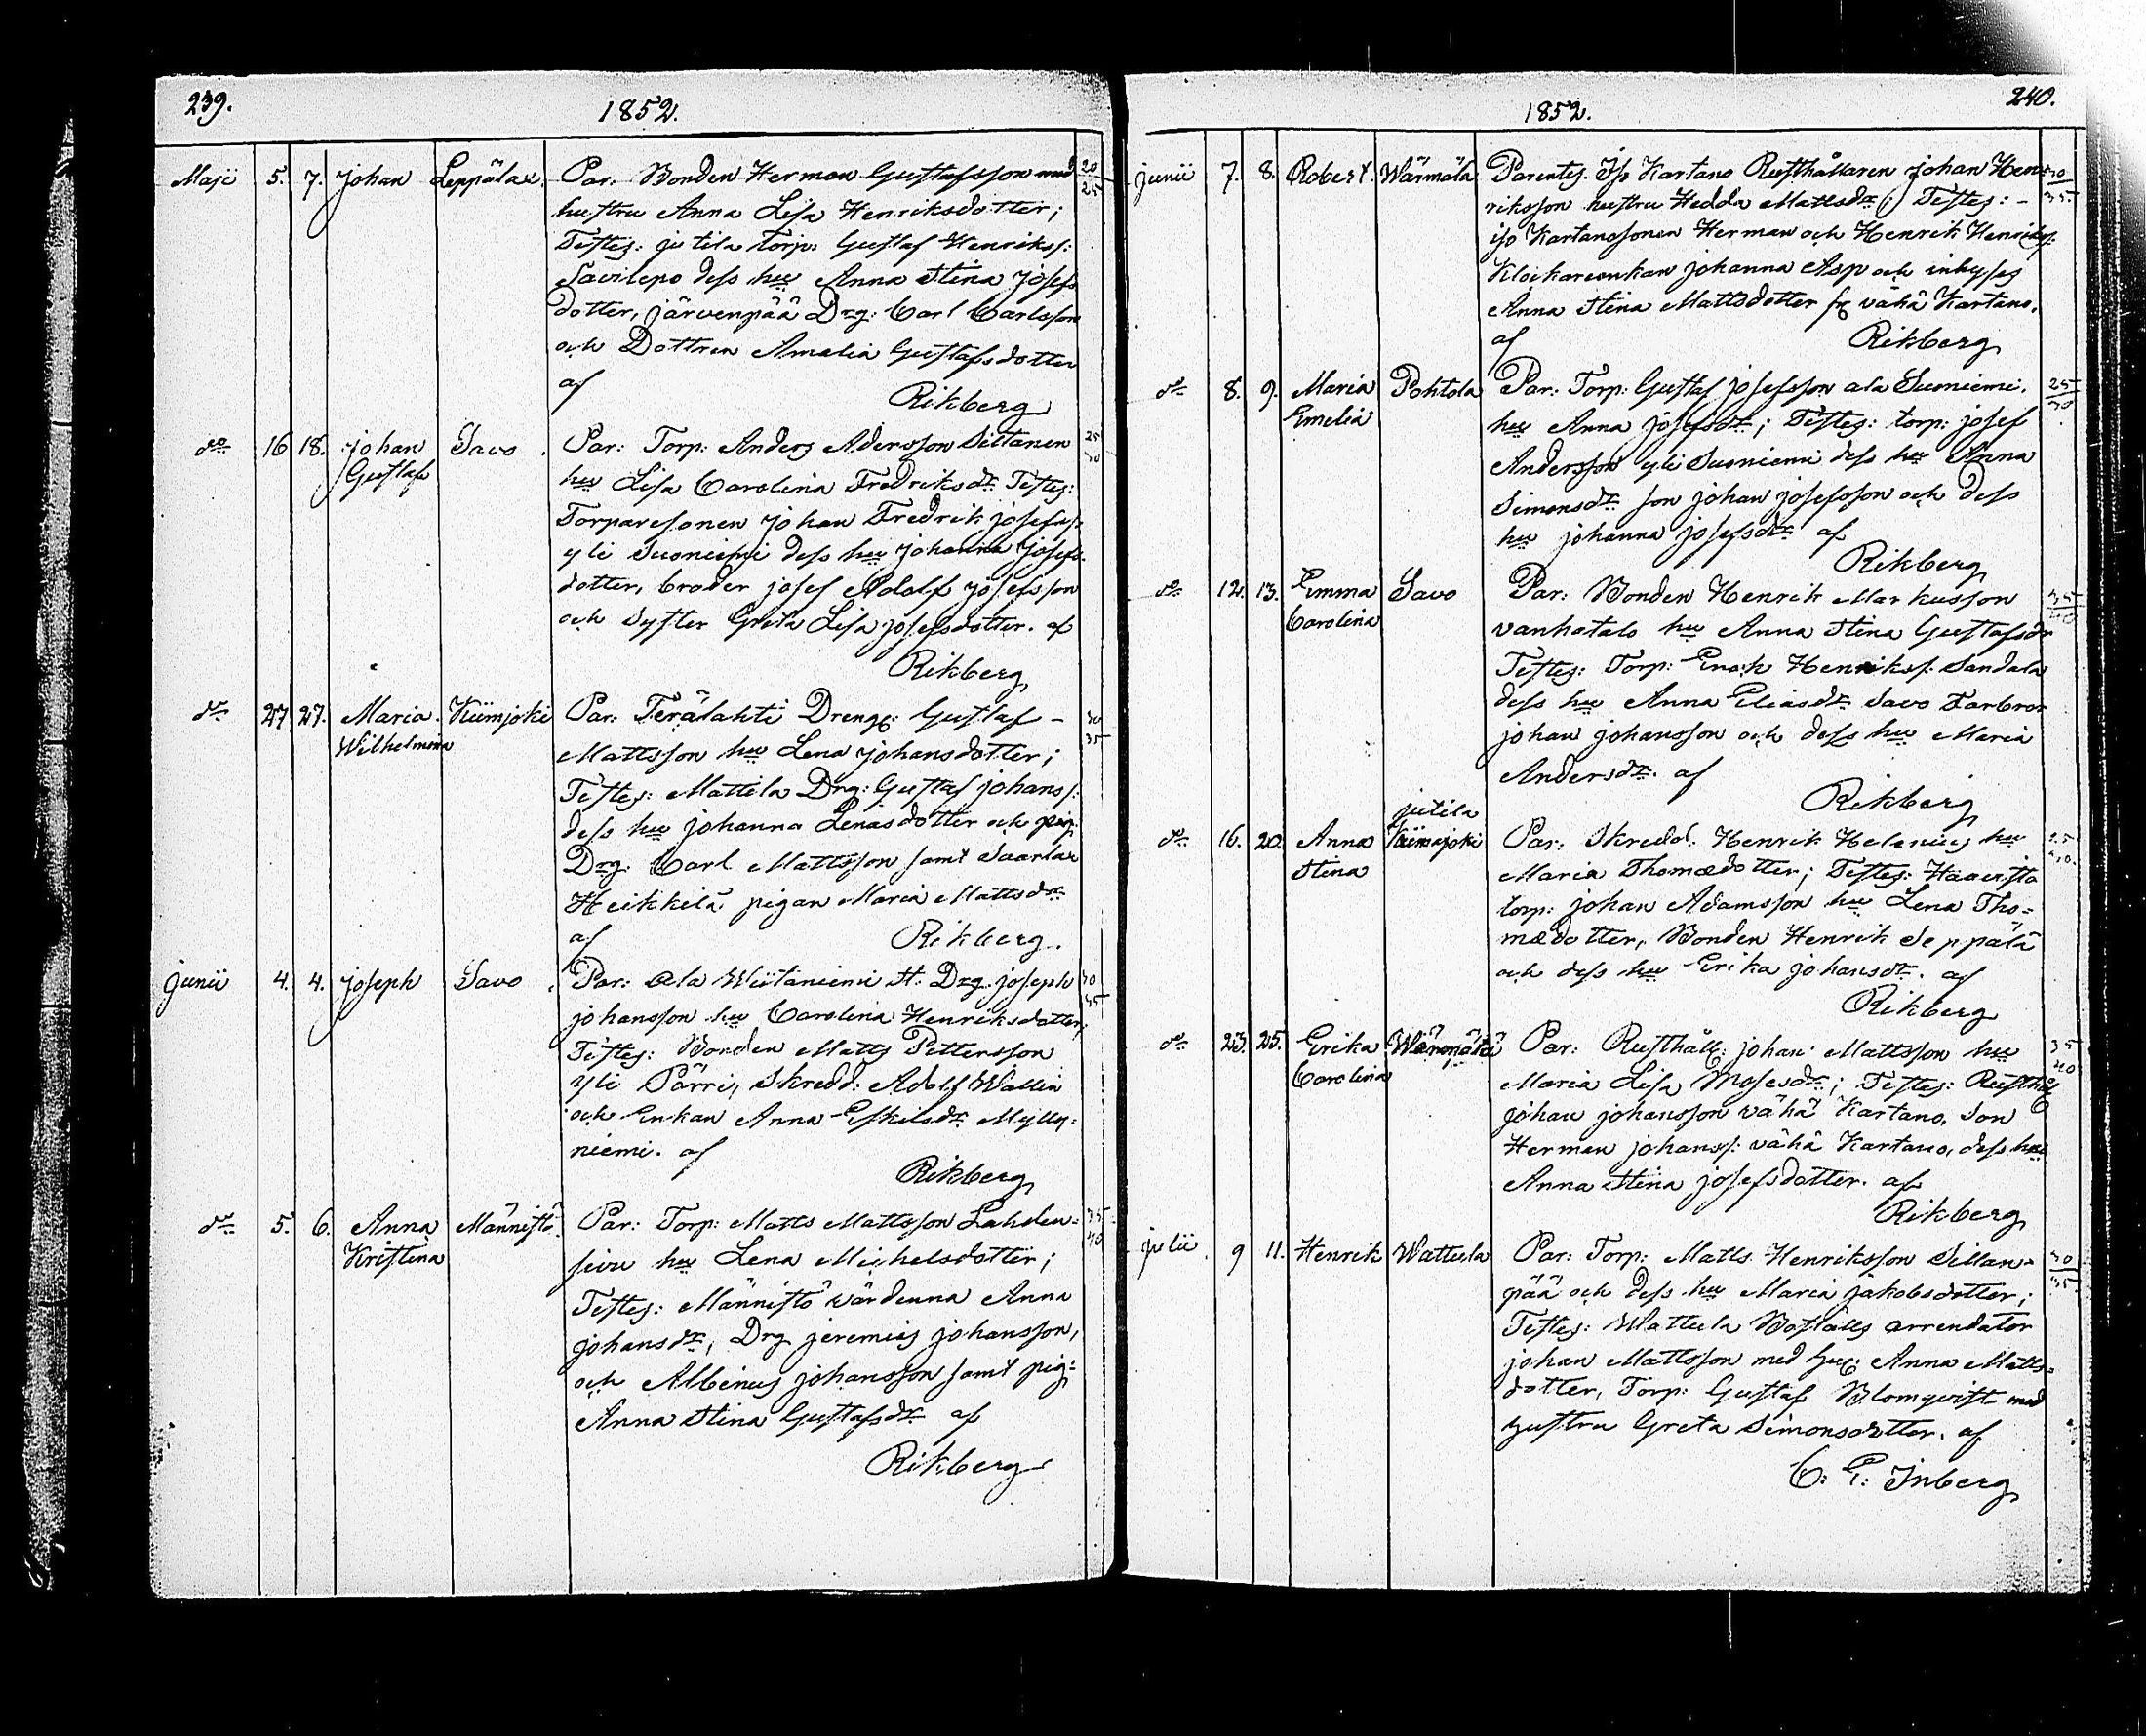 239.
1852.
Maji 5. 7. Johan Leppälax. Par: Bonden Herman Gustafsson med 20/25
hustru Anna Lisa Henriksdotter;
Testes: jutila Torp: Gustaf Henrikss:
Savilepo dess hu Anna Stina Josefs
dotter, järvenpää Drg: Carl Carlsson
och Dottren Amalia Gustafsdotter
af Rikberg
do 16 18. Johan Savo. Par: Torp: Anders Adersson Siltanen 25/30
Gustaf hu Lisa Carolina Fredriksdr Testes:
Torparesonen Johan Fredrik josefss:
yli Suoniemi dess hu Johanna Josefs
dotter, broder josef Adolf Josefsson
och Syster Greta Lisa josefsdotter. af
Rikberg
do 27 27. Maria Kiimjoki Par: Terälahti Dreng: Gustaf - 30/35
Wilhelmina Mattsson hu Lena johansdotter;
Testes: Mattila Drg: Gustaf johanss:
dess hu johanna Lenasdotter och pig:
Drg. Carl Mattsson samt Saarlax
Heikkilä pigan Maria Mattsdr
af Rikberg.
Junii 4. 4. Joseph Savo. Par: ala Wiitaniemi St: Drg. joseph 30/35
johansson hu Carolina Henriksdotter;
Testes: Bonden Matts Pettersson
yli Pärri, Skredd: Adolf Wallin
och Enkan Anna Eskilsdr Mylly-
niemi. af
Rikberg
do 5. 6. Anna Männistö. Par: Torp: Matts Mattsson Lahden= 35/40
Kristina sivu hu Lena Michelsdotter;
Testes: Männistö värdinna Anna
johansdr, Drg jeremias johansson,
och Albinus johansson samt pig:
Anna Stina Gustafsdr af
Rikberg
240.
1852.
Junii 7. 8. Robert. Wärmälä Parentes. Iso Kartano Rusthållaren Johan Hen= 30/35
riksson hustru Hedda Mattsdr; Testes: -
iso Kartanosonen Herman och Henrik Henrikss:
Klockareenkan johanna Asp och inhyses
Anna Stina Mattsdotter fr vähä Kartano.
af Rikberg
do 8. 9. Maria Pohtola Par: Torp: Gustaf josefsson ala Suoniemi. 25/30
Emelia hu Anna josefsdr; Testes: torp: josef
Andersson yli Suoniemi dess hu Anna
Simonsdr son johan josefsson och dess
hu johanna josefsdr af
Rikberg
do 12. 13. Emma Savo Par: Bonden Henrik Markusson
Carolina vanhatalo hu Anna Stina Gustafsdr
Testes: Torp: Enoch Henrikss: Sandala
dess hu Anna Eliasdr Savo Farbror
johan johansson och dess hu Maria
Andersdr. af
Rikberg
jutila
do 16. 20. Anna Kiimajoki Par: Skredd. Henrik Helenius hu
Stina Maria Thomædotter; Testes:
torp: johan Adamsson hu Lena Tho=
mædotter, Bonden Henrik Seppälä
och dess hu Erika johansdr. af
Rikberg
do 23. 25. Erika Wärmälä Par: Rusthåll: johan Mattsson hu 35/40
Carolina Maria Lisa Mosesdr; Testes: Rusthåll
johan johansson vähä Kartano, Son
Herman johanss: vähä Kartano, dess hu
Anna Stina josefsdotter. af
Rikberg
julii 9 11. Henrik Wattula Par: Torp: Matts Henriksson Sillan- 30/35
pää och dess hu Maria jakobsdotter;
Testes: Wattula Boställs arrendator
johan Mattsson med hu: Anna Matts=
dotter, Torp: Gustaf Blomqvist med
hustru Greta Simonsdotter. af
C: E: Inberg